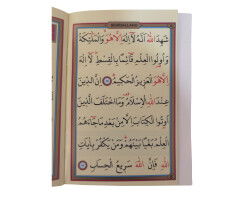 شَهِدَ اللّٰهُ اَنَّهُ لَٓا اِلٰهَ اِلَّا هُوَ وَالْمَلٰٓئِكَةُ
وَاُولُوا الْعِلْمِ قَٓائِمًا بِالْقِسْطِ لَٓا اِلٰهَ
اِلَّا هُوَ الْعَزٖيزُ الْحَكٖيمُ اِنَّ الدّٖينَ
عِنْدَ اللّٰهِ الْاِسْلَامُ وَمَا اخْتَلَفَ الَّذٖينَ
اُوتُوا الْكِتَابَ اِلَّا مِنْ بَعْدِ مَا جَٓاءَهُمُ
الْعِلْمُ بَغْيًا بَيْنَهُمْ وَمَنْ يَكْفُرْ بِاٰيَاتِ
اللّٰهِ فَاِنَّ اللّٰهَ سَرٖيعُ الْحِسَابِ